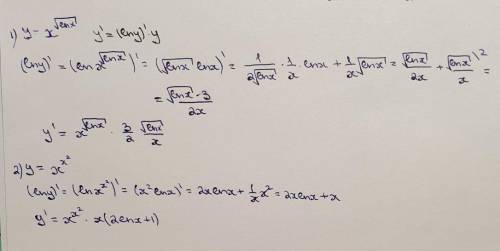 1) y = x^√lnx   y' = (lny)' y
(lny)' = (lnx^√lnx)' = (√lnx lnx)' = 1/(2√lnx) · 1/x · lnx + 1/x √lnx = √lnx/(2x) + √lnx/x \2 =
= √lnx · 3/(2x)
y' = x^√lnx · 3/2 √lnx/x
2) y = x^x²
(lny)' = (lnx^x²)' = (x² lnx)' = 2xlnx + 1/x x² = 2xlnx + x
y' = x^x² · x(2lnx+1)